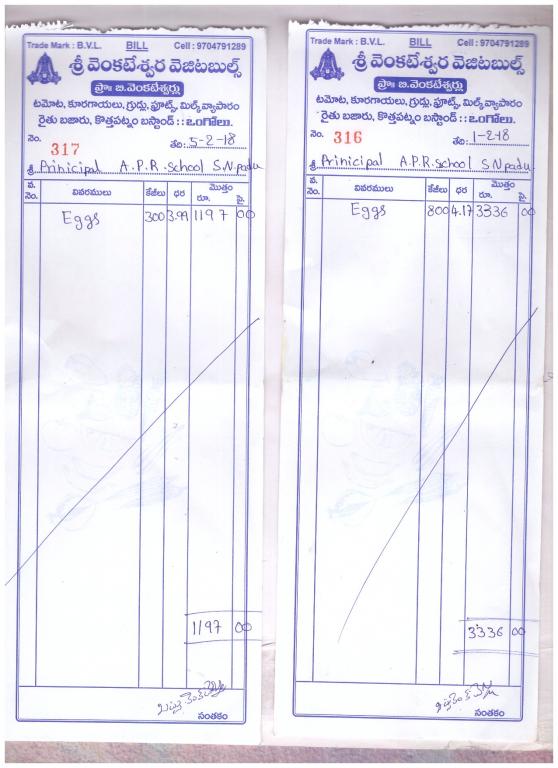 Trade Mark : B.V.L. BILL Cell : 9704791289
శ్రీ వెంకటేశ్వర వెజిటబుల్స్
ప్రొః బి.వెంకటేశ్వర్లు
టమోట, కూరగాయలు, గ్రుడ్లు, ఫ్రూట్స్, మిల్క్ వ్యాపారం
రైతు బజారు, కొత్తపట్నం బస్టాండ్ :: ఒంగోలు.
నెం. 317 తేది: 5-2-18
శ్రీ Prinicipal A.P.R. School S.N.padu
వ. నెం. వివరములు కేజీలు ధర మొత్తం రూ. పై.
Eggs 300 3.99 1197 00
1197 00
సంతకం
Trade Mark : B.V.L. BILL Cell : 9704791289
శ్రీ వెంకటేశ్వర వెజిటబుల్స్
ప్రొః బి.వెంకటేశ్వర్లు
టమోట, కూరగాయలు, గ్రుడ్లు, ఫ్రూట్స్, మిల్క్ వ్యాపారం
రైతు బజారు, కొత్తపట్నం బస్టాండ్ :: ఒంగోలు.
నెం. 316 తేది: 1-2-18
శ్రీ Prinicipal A.P.R. School S.N.padu
వ. నెం. వివరములు కేజీలు ధర మొత్తం రూ. పై.
Eggs 800 4.17 3336 00
3336 00
సంతకం